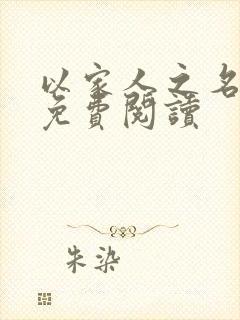 以家人之名
免費閱讀
朱染